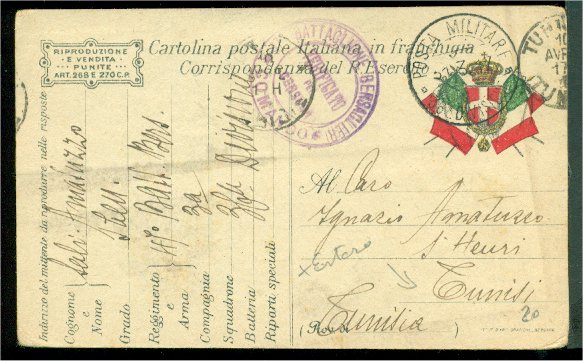 RIPRODUZIONE
E VENDITA
PUNITE
ART. 268 E 270 C.P.
Cartolina postale Italiana in franchigia
Corrispondenza del R. Esercito
BATTAGLIONE BERSAGLIERI
POSTA MILITARE
TUNIS
AVR
17
Indirizzo del mittente da riprodurre nelle risposte
Cognome e Nome
Salv. Amatuzzo
Grado
Reggimento e Arma
Batt. Bers.
Compagnia
3a
Squadrone
Divisione
Batteria
Riparti speciali
Al Caro
Ignazio Amatuzzo
S' Henri
Tunisi
Tunisia
20